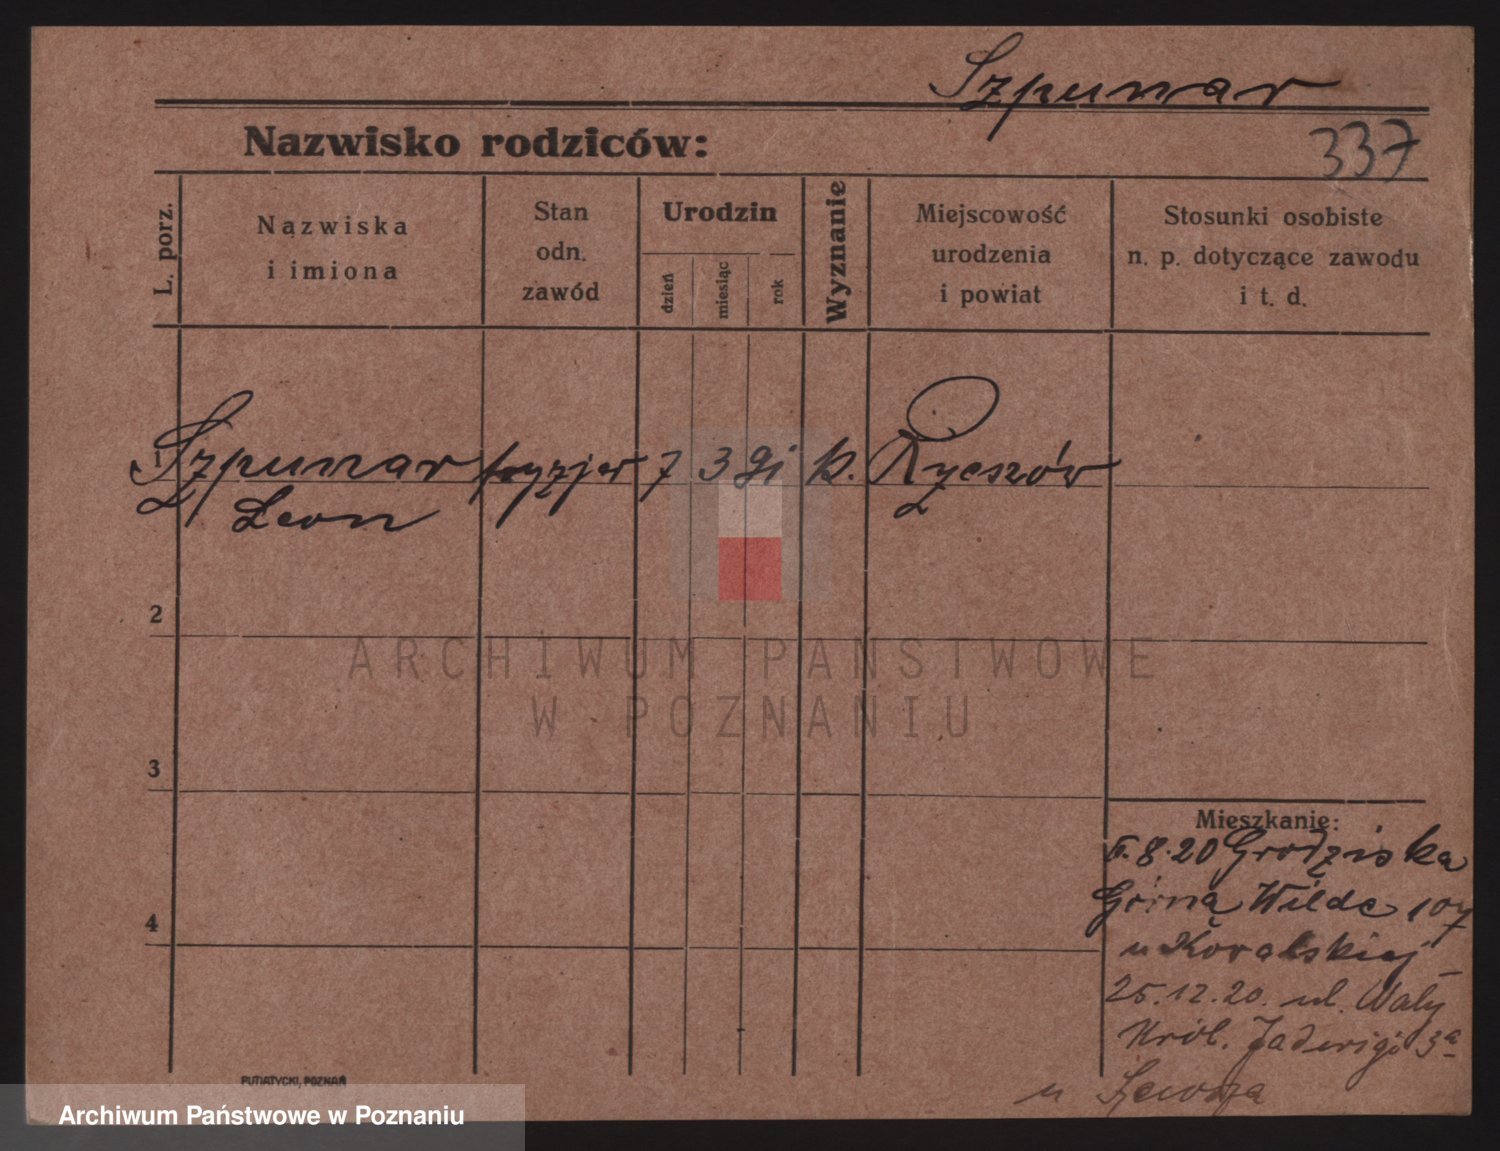 Szpunar
Nazwisko rodziców:
337
L. porz.
Nazwiska
i imiona
Stan
odn.
zawód
Urodzin
dzień
miesiąc
rok
Wyznanie
Miejscowość
urodzenia
i powiat
Stosunki osobiste
n. p. dotyczące zawodu
i t. d.
1
Szpunar fryzjer 7 3 91 k. Rzeszów
Leon
2
ARCHIWUM PAŃSTWOWE
W POZNANIU
3
Mieszkanie:
8.20 Grodziska
4
Górna Wilda 107
u Kowalskiej
25.12.20. ul. Wały
Król. Jadwigi 3a
u
PUTIATYCKI, POZNAŃ
Archiwum Państwowe w Poznaniu